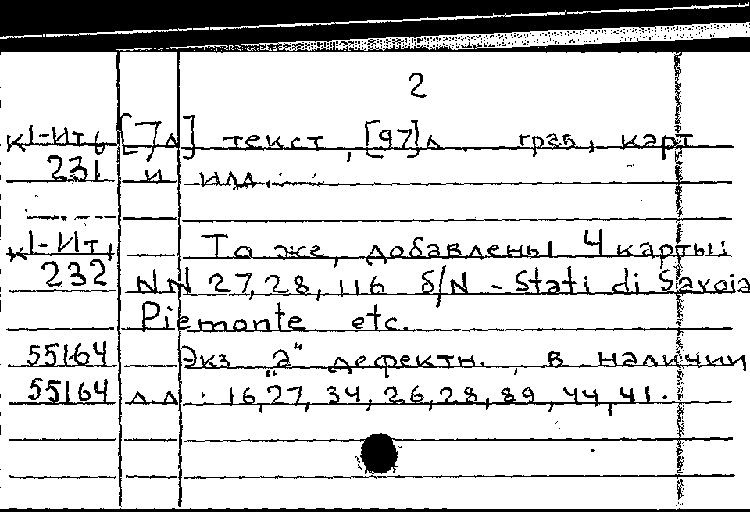 2
К1-Ит, [7л] текст, [97]л. грав, карт
231 и илл.
К1-Ит, То же, добавлены 4 карты:
232 NN 27, 28, 116 б/N - Stati di Savoia
Piemonte etc.
55164 Экз "2" дефектн., в наличии
55164 лл: 16, 27, 34, 26, 28, 89, 44, 41.